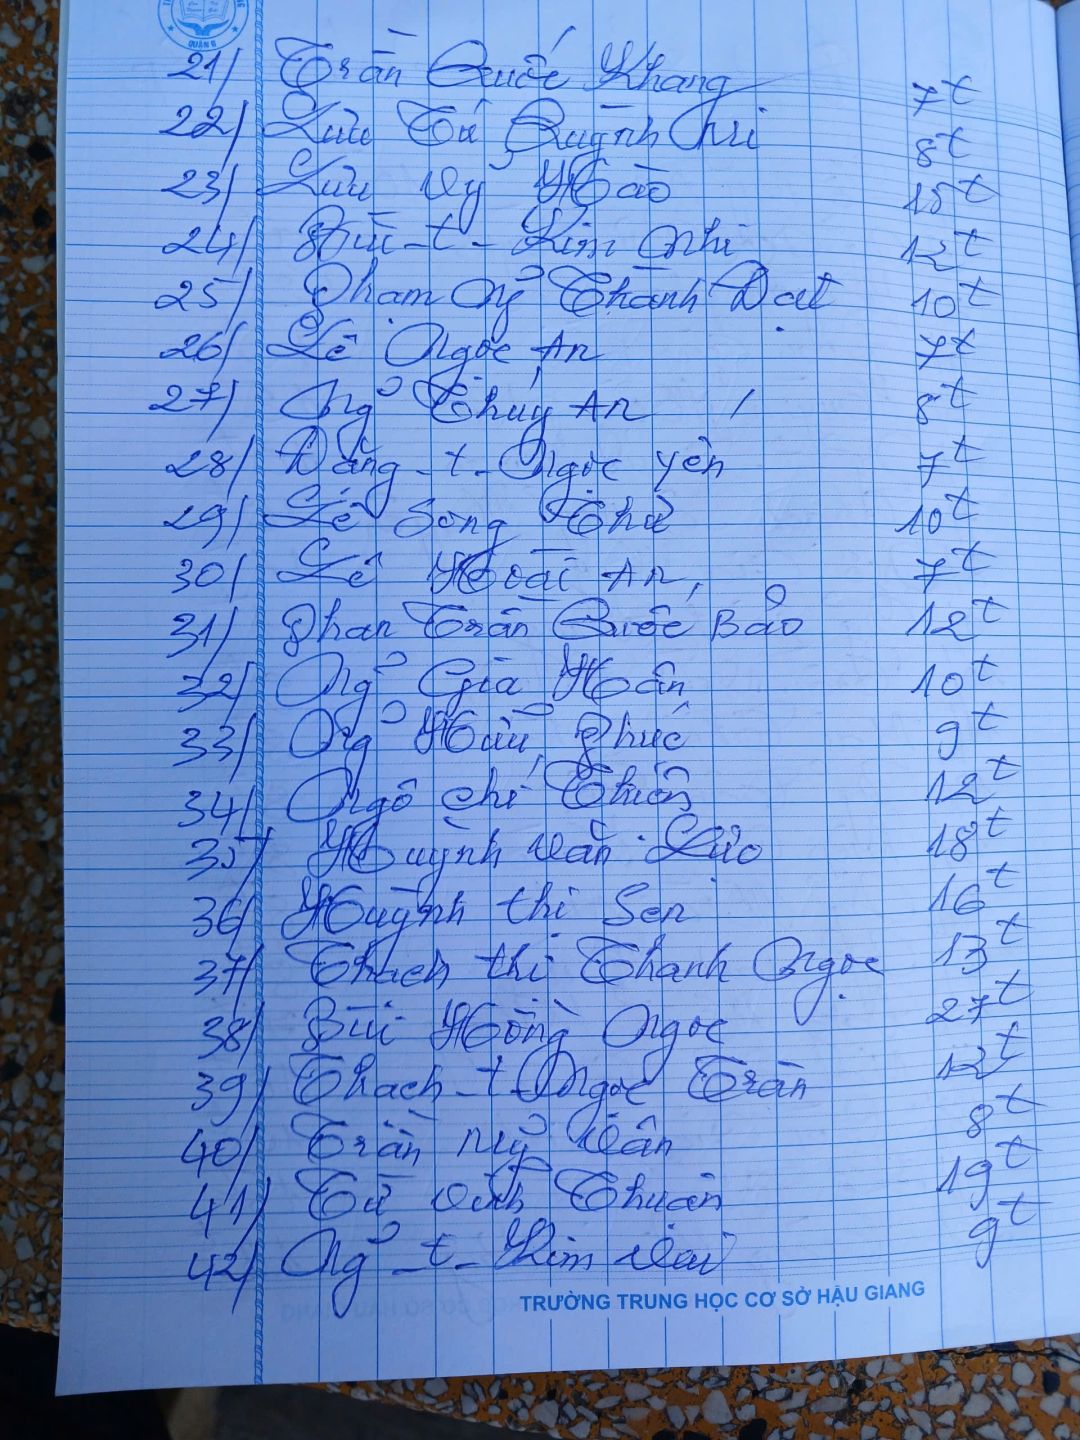 QUẬN 6
21/ Trần Quốc Khang 7t
22/ Lưu Tú Quỳnh Chi 8t
23/ Lưu Vỹ Hào 15t
24/ Bùi - t - Kim Nhi 12t
25/ Phạm Ng̉ Thành Đạt 10t
26/ Lê Ngọc An 7t
27/ Ng̉ Thúy An 8t
28/ Đặng - t - Ngọc Yến 7t
29/ Lê Song Thư 10t
30/ Lê Hoài An 7t
31/ Phan Trần Quốc Bảo 12t
32/ Ng̉ Gia Hân 10t
33/ Ng̉ Hữu Phúc 9t
34/ Ngô Chí Thiện 12t
35/ Huỳnh Văn 18t
36/ Huỳnh Thị Sen 16t
37/ Thạch Thị Thanh Ngọc 13t
38/ Bùi Hồng Ngọc 27t
39/ Thạch - t - Ngọc Trân 12t
40/ Trần Mỹ Vân 8t
41/ Từ Vĩnh Thuận 19t
42/ Ng̉ - t - Kim 9t
TRƯỜNG TRUNG HỌC CƠ SỞ HẬU GIANG